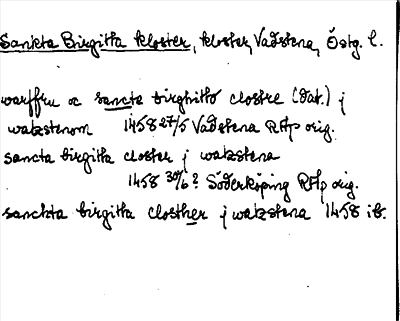 Sankta Birgitta kloster, kloster, Vadstena, Östg. l.
warffru a sancta birghitto clostre (dat.) j
watzstenom 1458 27/5 Vadstena RAp orig.
sancta birgitta closter j watzstena
1458 30/6? Söderköping RAp orig.
sanckta birgitta closther j watzstena 1458 ib.